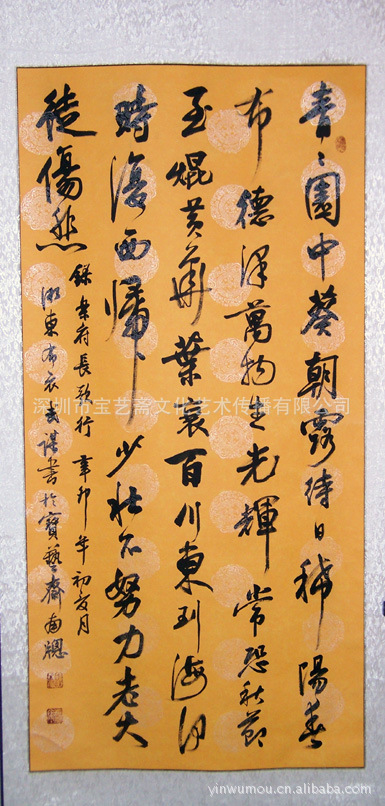 青〻園中葵朝露待日晞陽春
布德澤萬物生光輝常恐秋節
至焜黄華葉衰百川東到海何
時復西歸少壯不努力老大
徒傷悲
錄樂府長歌行 辛卯年初夏月
湘東布衣武謀書於寶藝齋南牕
深圳市宝艺斋文化艺术传播有限公司
yinwumou.cn.alibaba.com